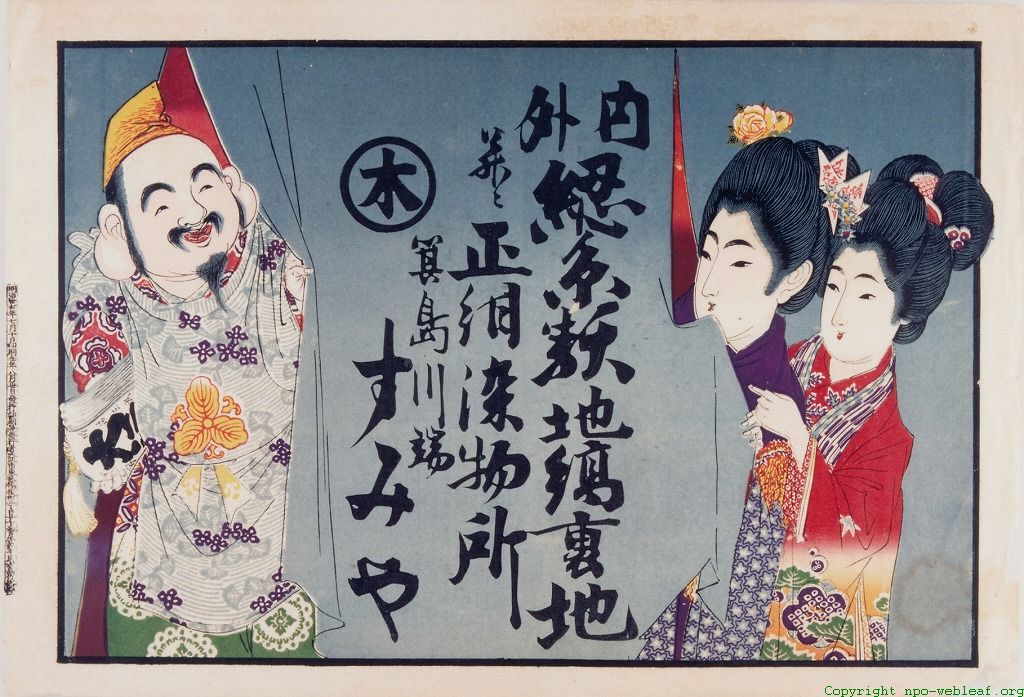 内
外
総糸類地縞裏地
并ニ
正絹染物所
箕島川端
すみや
木
Copyright npo-webleaf.org